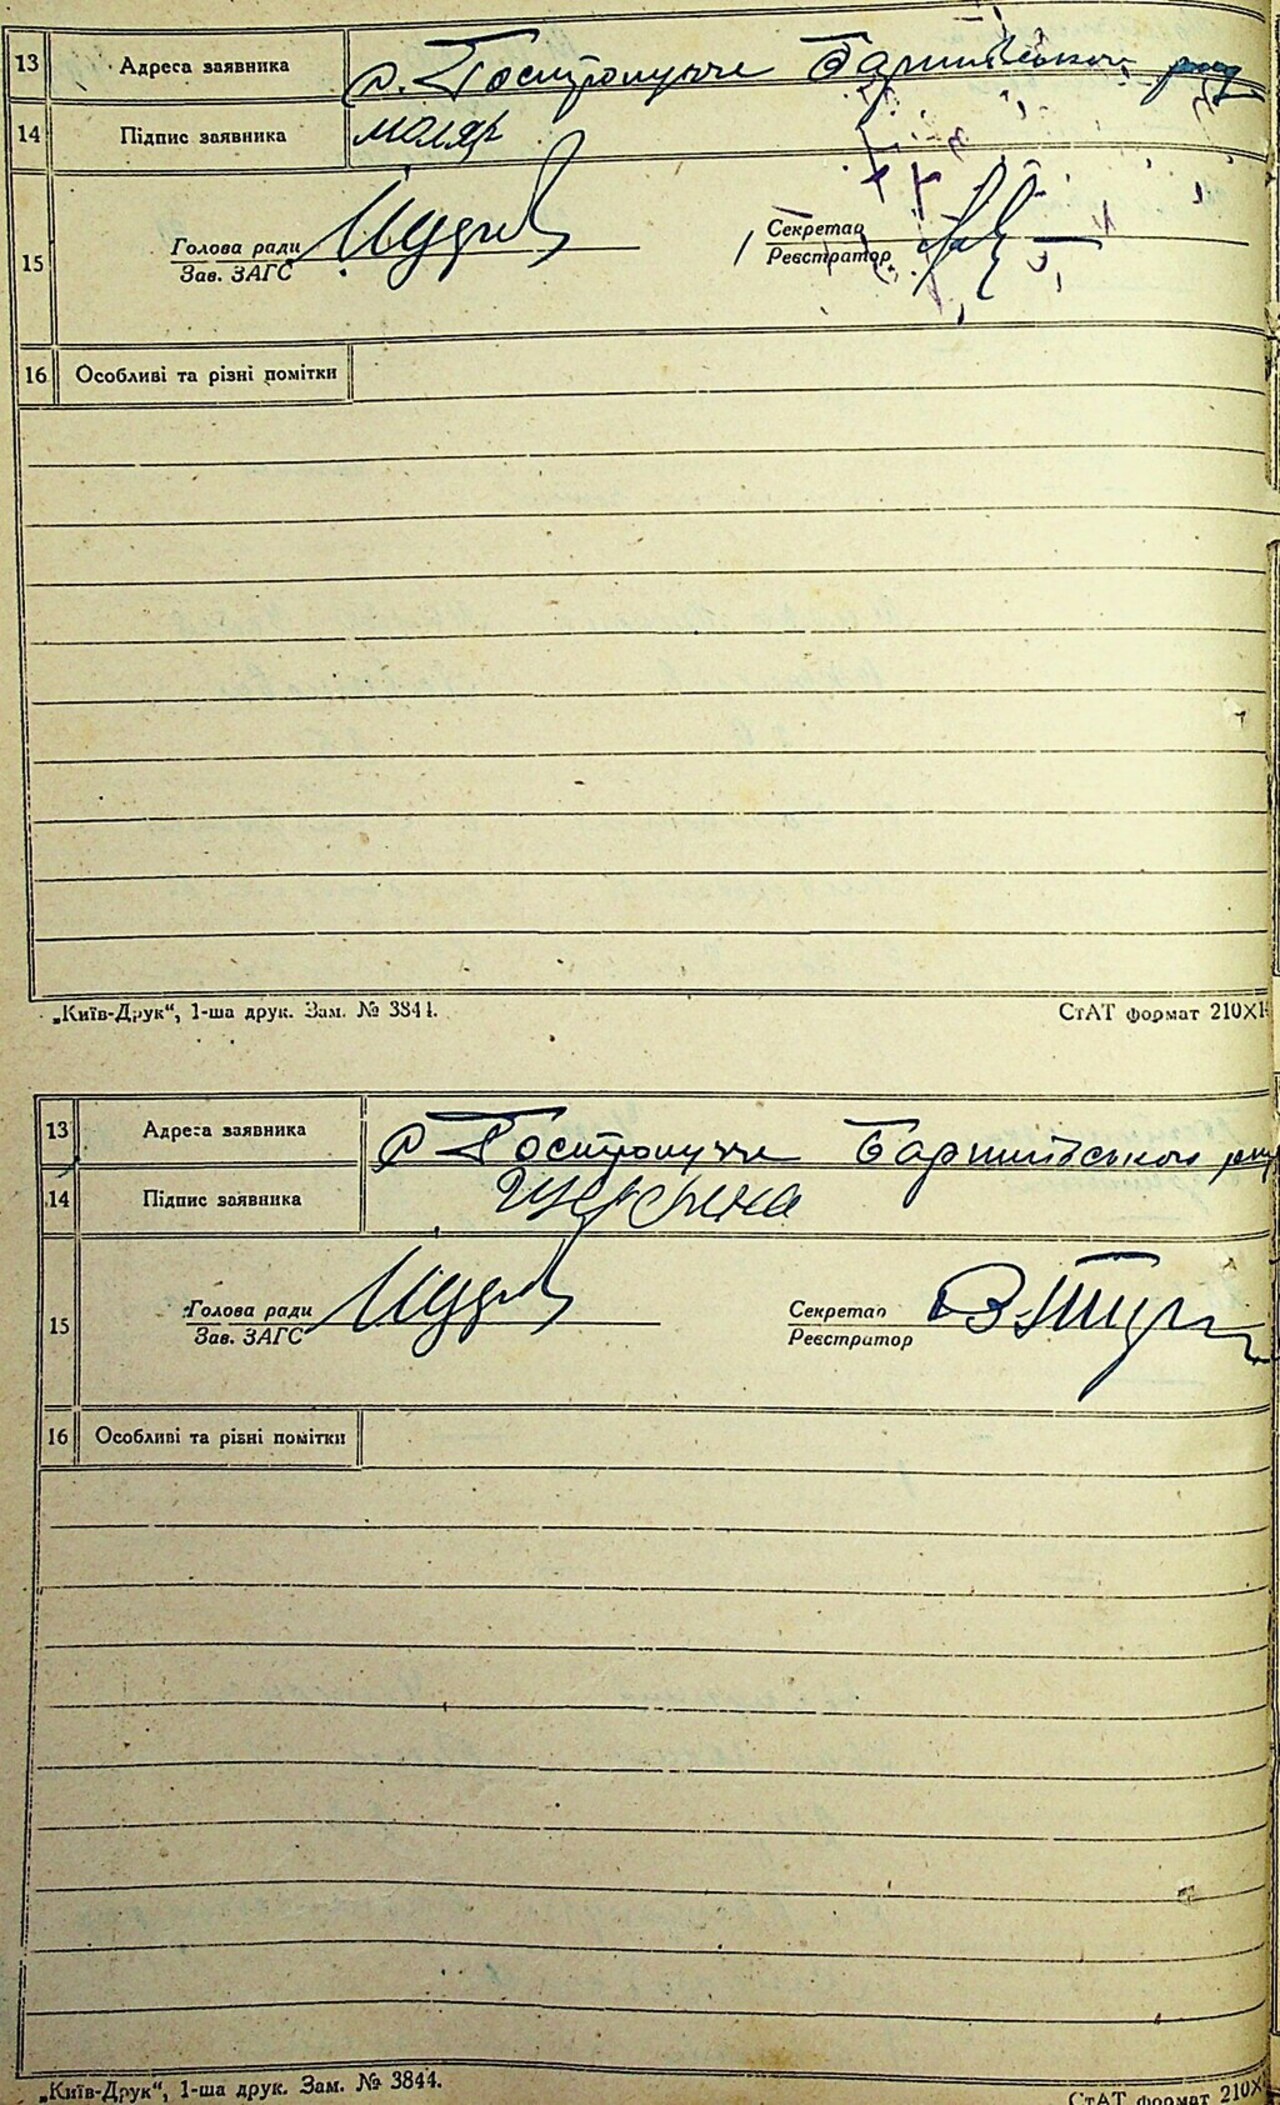 13 Адреса заявника с. Гостролуччя Баришівського рну
14 Підпис заявника маляр
15 Голова ради Секретар
Зав. ЗАГС Реєстратор
16 Особливі та різні помітки
„Київ-Друк“, 1-ша друк. Зам. № 3844. СтАТ формат 210X1
13 Адреса заявника с Гостролуччя Баришівського рну
14 Підпис заявника
15 Голова ради Секретар
Зав. ЗАГС Реєстратор
16 Особливі та різні помітки
„Київ-Друк“, 1-ша друк. Зам. № 3844. СтАТ формат 210X